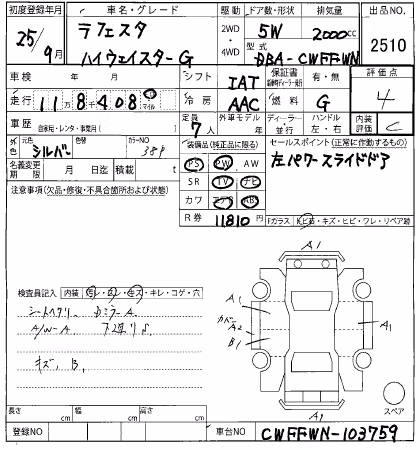 初度登録年月 車名・グレード 駆動 ドア数・形状 排気量 出品NO
25年 9月 ラフェスタ 2WD ・ 4WD 5W 2000cc 2510
ハイウェイスター G 型式 DBA-CWFFWN
車検 年 月 シフト IAT 保証書 有・無 評価点
走行 11万 8千 408 km マイル 冷房 AAC 燃料 G 4
車歴 自家用・レンタ・事業用( ) 定員 7人 外車モデル 年 ディーラー・並行 ハンドル 左・右 内装評価 C
外色 元色 シルバー 色替 カラーNO 389 装備品(純正品に限る) セールスポイント(正常に作動するもの)
名義変更期限 月 日迄 積載 t PS PW AW 左パワースライドドア
注意事項(欠品・修復・不具合箇所および状態) SR TV ナビ
カワ エアB ABS
R券 11810円 Fガラス トビ石・キズ・ヒビ・ワレ・リペア跡
A1
検査員記入 内装 ヨレ・コレ・キズ・キレ・コゲ・穴 A1
カバー A2 A1
A/W-A B1
キズ、B、
スペア
A1
長さ cm 幅 cm 高さ cm
登録NO 車台NO CWFFWN-103759